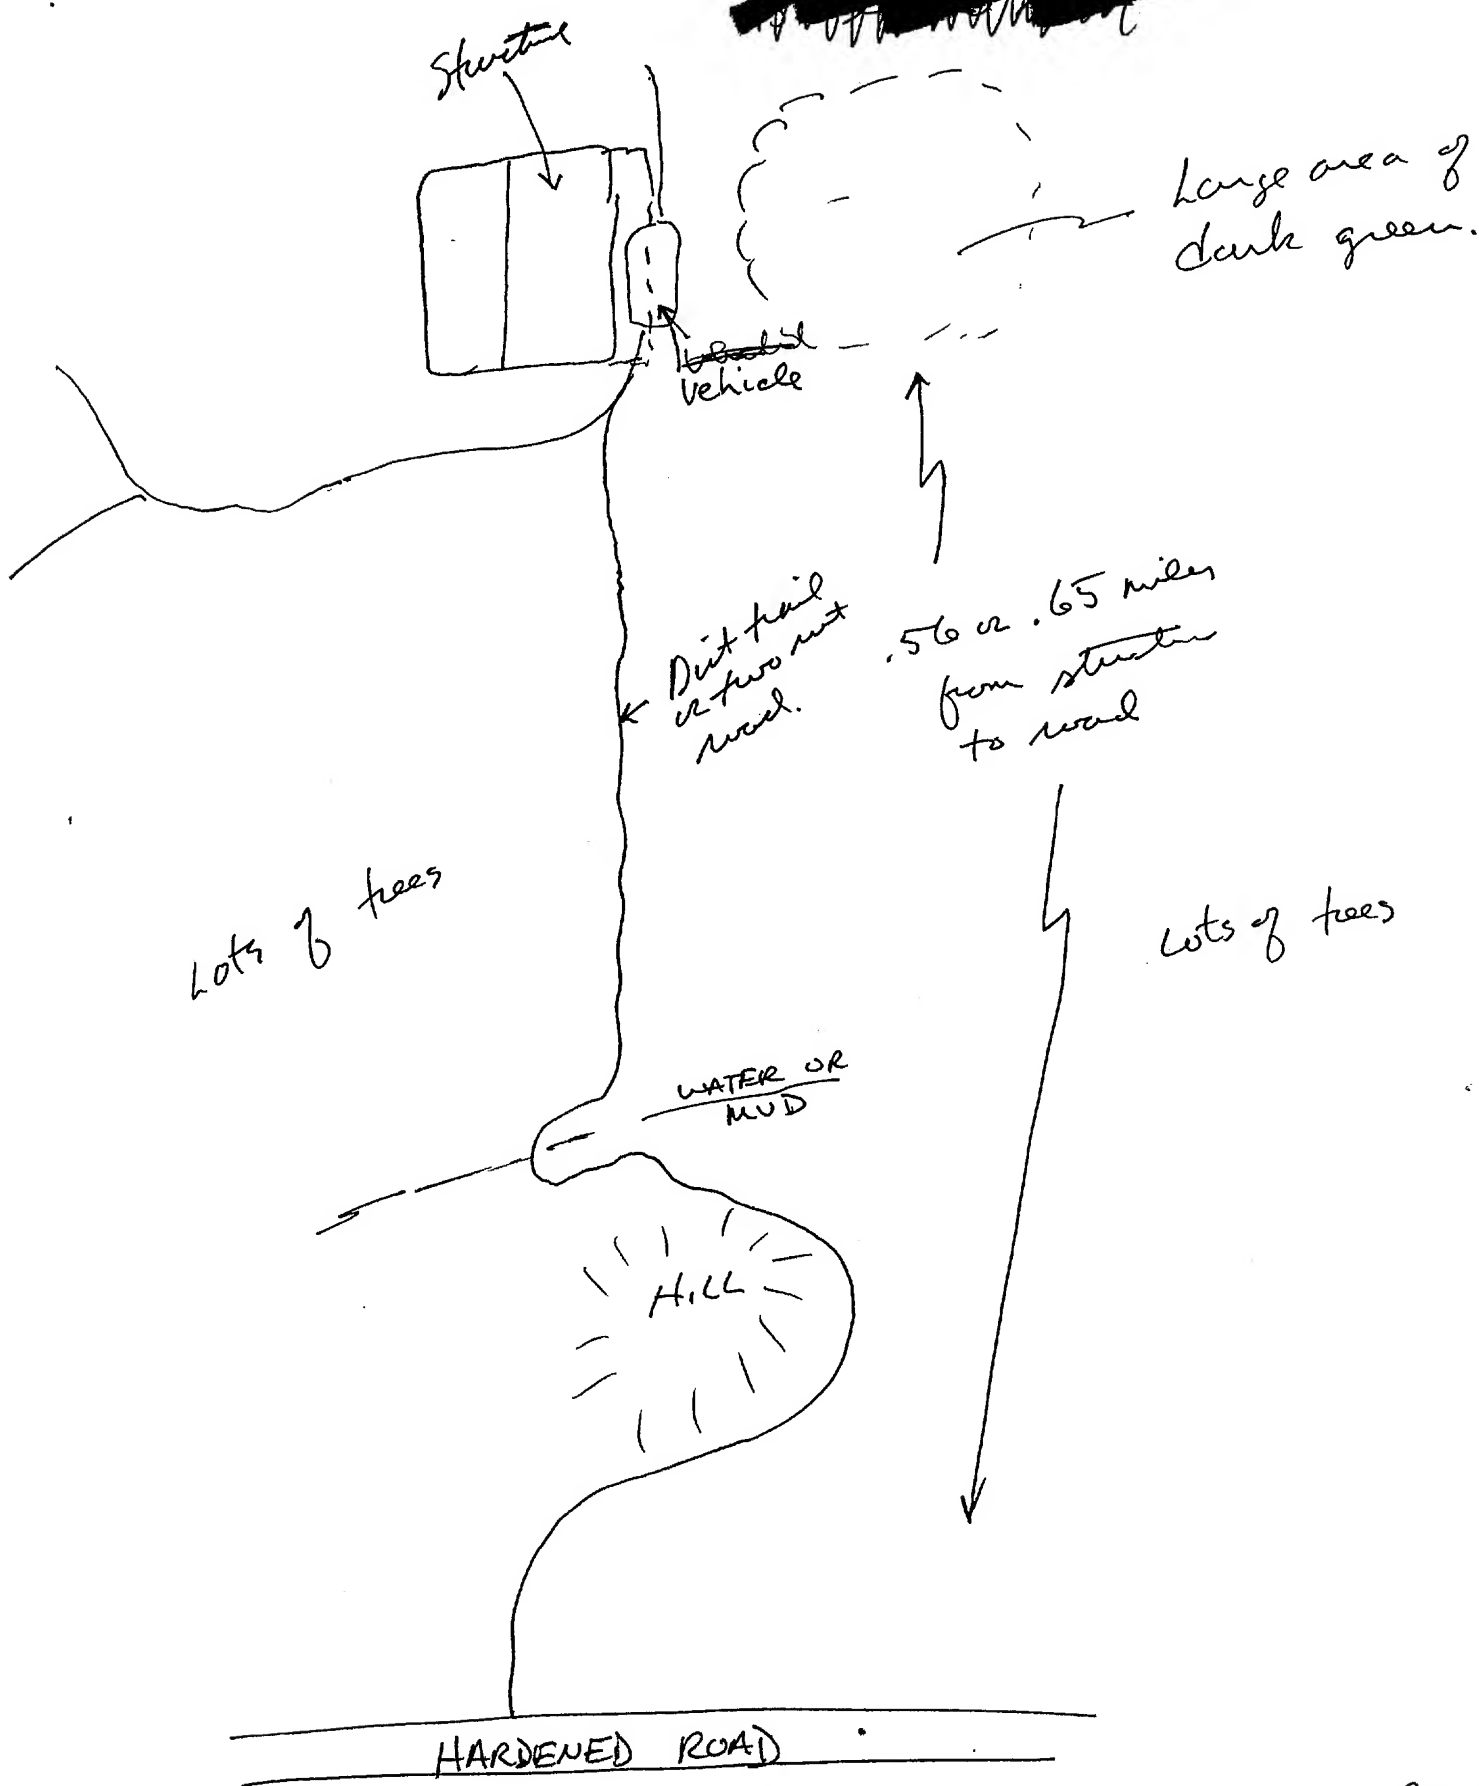 Structure
Large area of
dark green.
vehicle
Dirt trail
or two rut
road.
.56 or .65 miles
from structure
to road
Lots of trees
Lots of trees
WATER OR
MUD
HILL
HARDENED ROAD